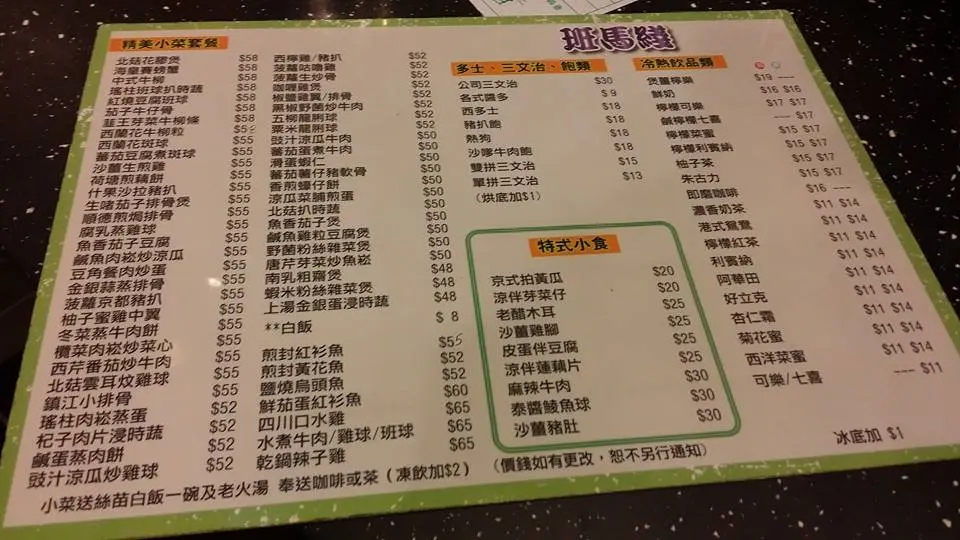 班馬綫
精美小菜套餐
北菇花膠煲 $58
海皇賽螃蟹 $58
中式牛柳 $58
瑤柱班球扒時蔬 $58
紅燒豆腐班球 $58
茄子牛仔骨 $58
韮王芽菜牛柳條 $58
西蘭花牛柳粒
西蘭花斑球 $55
蕃茄豆腐煮斑球 $55
沙薑生煎雞 $55
荷塘煎藕餅 $55
什果沙拉豬扒 $55
生啫茄子排骨煲 $55
順德煎焗排骨 $55
腐乳蒸雞球 $55
魚香茄子豆腐 $55
鹹魚肉崧炒涼瓜 $55
豆角餐肉炒蛋 $55
金銀蒜蒸排骨 $55
菠蘿京都豬扒 $55
柚子蜜雞中翼 $55
冬菜蒸牛肉餅 $55
欖菜肉崧炒菜心 $55
西芹番茄炒牛肉 $55
北菇雲耳炆雞球 $55
鎮江小排骨 $55
瑤柱肉崧蒸蛋 $52
杞子肉片浸時蔬 $52
鹹蛋蒸肉餅 $52
豉汁涼瓜炒雞球 $52
西檸雞/豬扒 $52
菠蘿咕嚕雞 $52
菠蘿生炒骨 $52
咖喱雞煲 $52
椒鹽雞翼/排骨 $52
黑椒野菌炒牛肉 $52
五柳龍脷球 $52
粟米龍脷球 $52
豉汁涼瓜牛肉 $50
蕃茄蛋煮牛肉 $50
滑蛋蝦仁 $50
蕃茄薯仔豬軟骨 $50
香煎蠔仔餅 $50
涼瓜菜脯煎蛋 $50
北菇扒時蔬 $50
魚香茄子煲 $50
鹹魚雞粒豆腐煲 $50
野菌粉絲雜菜煲 $50
唐芹芽菜炒魚崧 $50
南乳粗齋煲 $48
蝦米粉絲雜菜煲 $48
上湯金銀蛋浸時蔬 $48
**白飯 $ 8
煎封紅衫魚 $55
煎封黃花魚 $52
鹽燒烏頭魚 $52
鮮茄蛋紅衫魚 $60
四川口水雞 $65
水煮牛肉/雞球/班球 $65
乾鍋辣子雞 $65
多士、三文治、飽類
公司三文治 $30
各式醬多 $ 9
西多士 $18
豬扒飽 $18
熱狗 $18
沙嗲牛肉飽 $18
雙拼三文治 $15
單拼三文治 $13
(烘底加$1)
特式小食
京式拍黃瓜 $20
涼伴芽菜仔 $20
老醋木耳 $25
沙薑雞腳 $25
皮蛋伴豆腐 $25
涼伴蓮藕片 $25
麻辣牛肉 $30
泰醬鯪魚球 $30
沙薑豬肚 $30
冷熱飲品類
煲薑檸樂 $19 ---
鮮奶 $16 $16
檸檬可樂 $17 $17
鹹檸檬七喜 --- $17
檸檬菜蜜 $15 $17
檸檬利賓納 $15 $17
柚子茶 $15 $17
朱古力 $15 $17
即磨咖啡 $16 ---
濃香奶茶 $11 $14
港式鴛鴦 $11 $14
檸檬紅茶 $11 $14
利賓納 $11 $14
阿華田 $11 $14
好立克 $11 $14
杏仁霜 $11 $14
菊花蜜 $11 $14
西洋菜蜜 $11 $14
可樂/七喜 --- $11
冰底加 $1
小菜送絲苗白飯一碗及老火湯 奉送咖啡或茶（凍飲加$2）
(價錢如有更改，恕不另行通知)